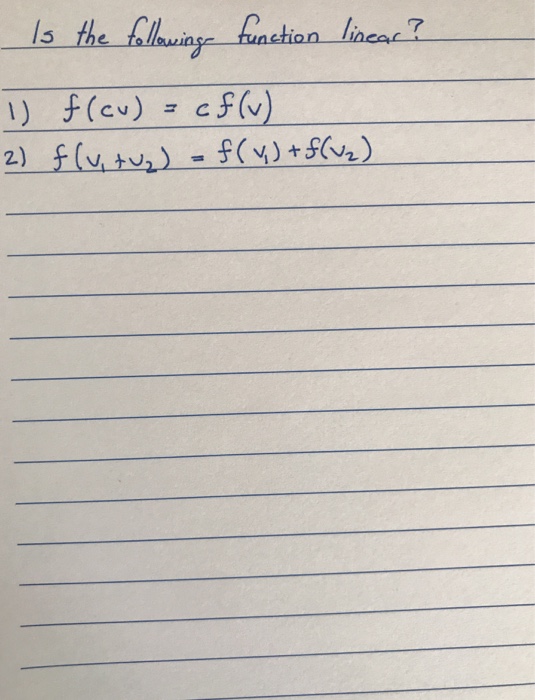 Is the following function linear?
1) f(cv) = cf(v)
2) f(v₁+v₂) = f(v₁)+f(v₂)